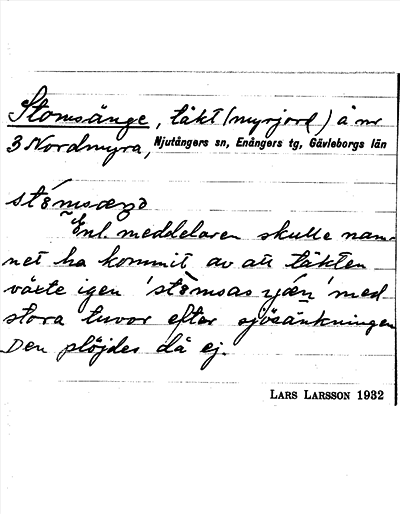 Stomsänge, täkt (myrjord) å nr
3 Nordmyra, Njutångers sn, Enångers tg, Gävleborgs län
Enl. meddelaren skulle nam-
net ha kommit av att täkten
växte igen 'stømsas ijæn' med
stora tuvor efter sjösänkningen
Den plöjdes då ej.
LARS LARSSON 1932